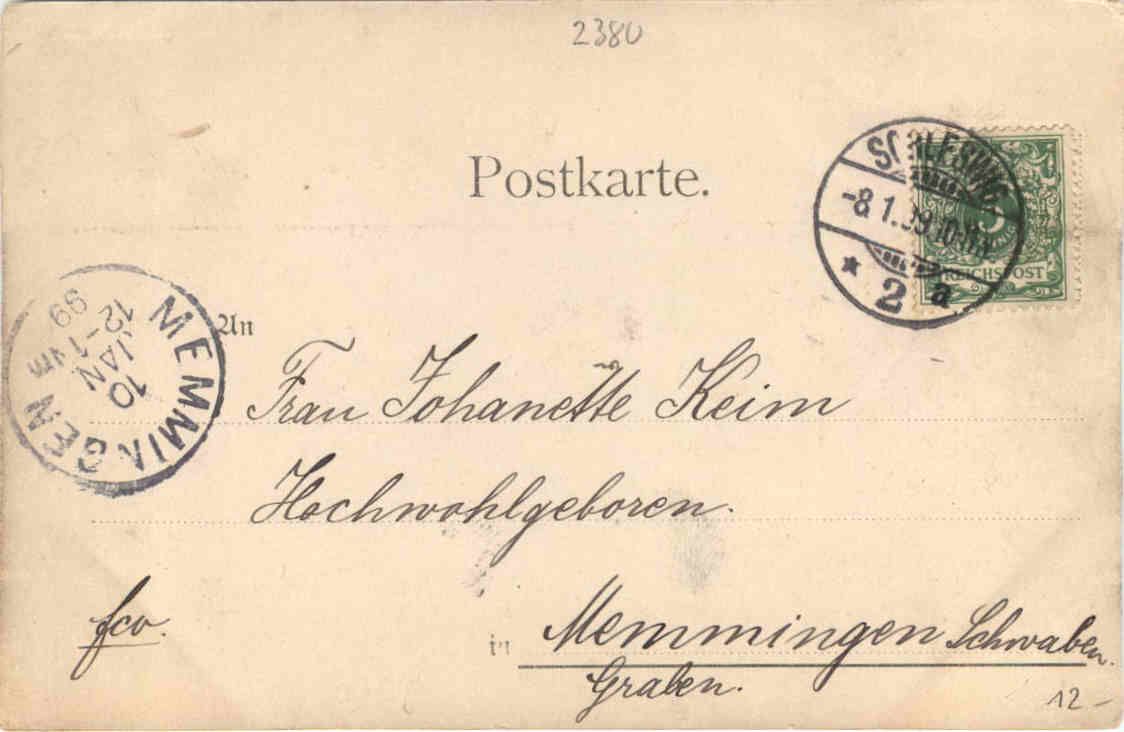 2380
Postkarte.
SCHLESWIG
-8.1.99
2 a
5
REICHSPOST
MEMMINGEN
10
JAN
12-1 Nm
99
An
Frau Johanette Keim
Hochwohlgeboren.
fco.
in Memmingen Schwaben.
Graben.
12-